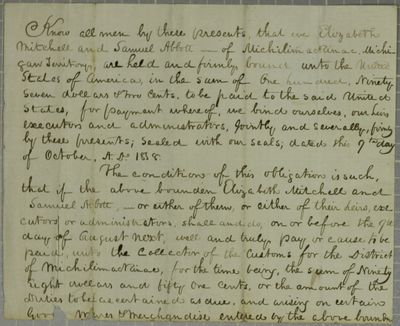 Know all men by these presents, that we Elizabeth
Mitchell and Samuel Abbott — of Michilimackinac, Michi-
gan Territory, are held and firmly bound unto the United
States of America, in the sum of One hundred, Ninety
seven dollars & two Cents, to be paid to the said United
States, for payment whereof, we bind ourselves, our heirs
executors and administrators, Jointly and severally, firmly
by these presents; sealed with our seals; dated this 9th day
of October, A.D. 1818.
The condition of this obligation is such,
that if the above bounden Elizabeth Mitchell and
Samuel Abbott, — or either of them, or either of their heirs, exe
cutors or administrators, shall and do, on or before the 9th
day of August next, well and truly pay or cause to be
paid, unto the Collector of the Customs for the District
of Michilimackinac, for the time being, the sum of Ninety
Eight dollars and fifty one Cents, or the amount of the
duties to be ascertained as due, and arising on certain
Goods Wares & Merchandise entered by the above bounden